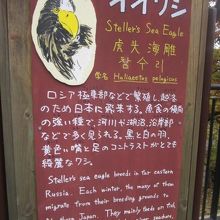 オオワシ
Steller's Sea Eagle
虎头海雕
참수리
学名 Haliaeetus pelagicus
ロシア極東部などで繁殖し、越冬
のため日本に飛来する。魚食の傾向
の強い種で、河川や湖沼、沿岸部
などで多く見られる。黒と白の羽、
黄色い嘴と足のコントラストがとても
綺麗なワシ。
Steller's sea eagle breeds in far eastern
Russia. Each winter, the many of them
migrate from their breeding grounds to
Japan. They mainly feeds on fish,